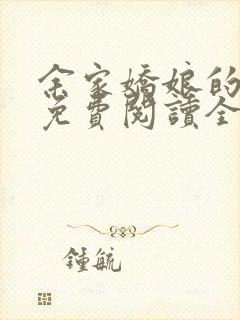 余家嬌娘的
免費閱讀全
鍾毓